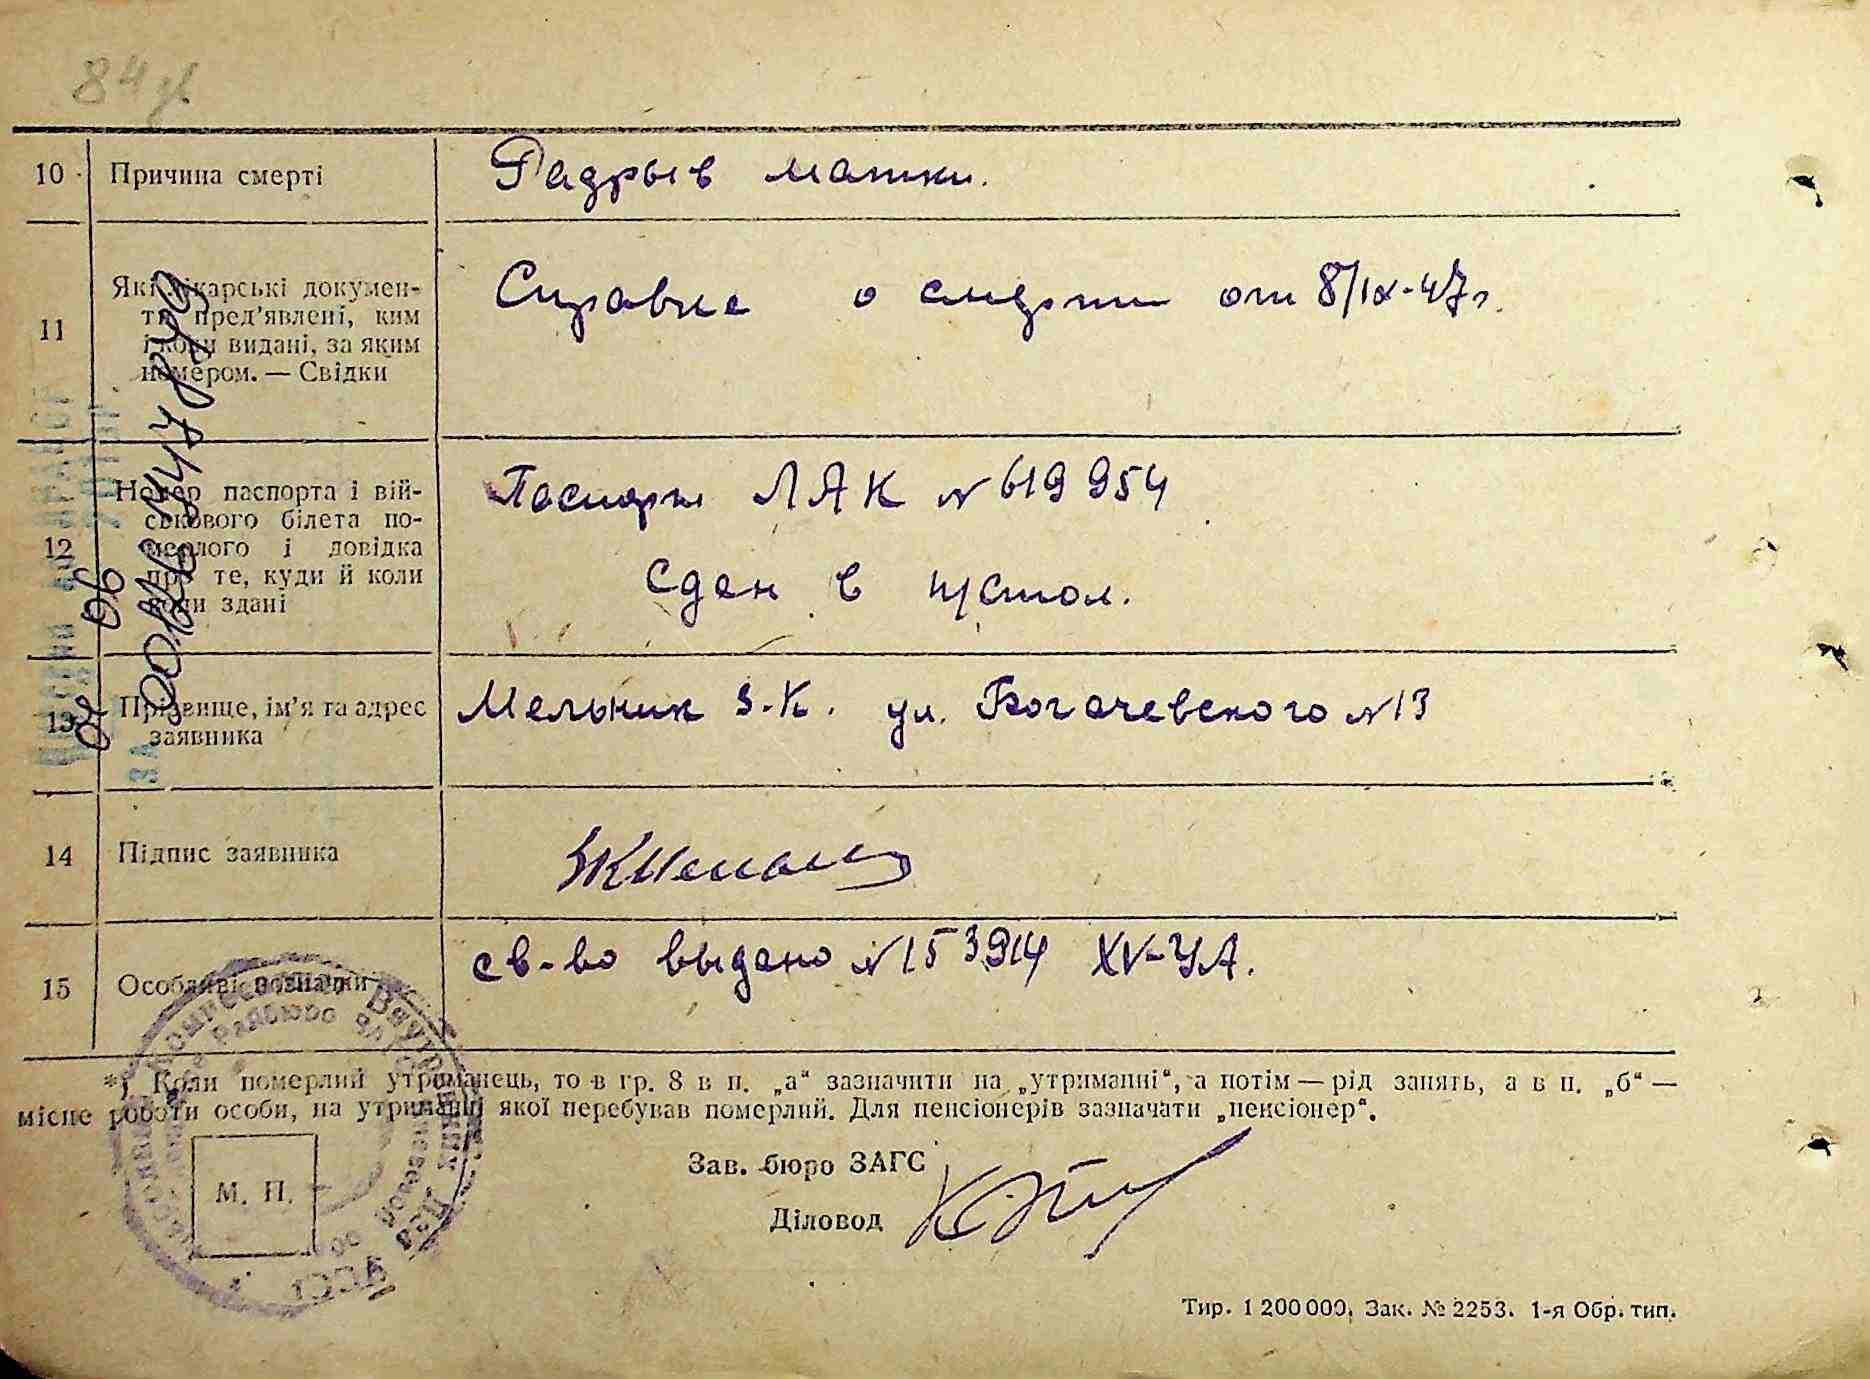 84
10 Причина смерті Радрыв матки.
11 Які лікарські докумен-
ти пред'явлені, ким
і коли видані, за яким
номером. — Свідки
Справка о смерти от 8/IX-47г.
12 Номер паспорта і вій-
ськового білета по-
мерлого і довідка
про те, куди й коли
вони здані
Паспорт ЛЯК № 619954
Сдан в п/стол.
13 Прізвище, ім'я та адрес
заявника
Мельник З.К. ул. Богачевского №13
14 Підпис заявника
15 Особливі позначки св-во выдано №153914 XV-УА.
*) Коли померлий утриманець, то в гр. 8 в п. „а“ зазначити на „утриманні“, а потім — рід занять, а в п. „б“ —
місце роботи особи, на утриманні якої перебував померлий. Для пенсіонерів зазначати „пенсіонер“.
Зав. бюро ЗАГС
Діловод
М. П.
Внутренних Дел
УССР
Тир. 1 200 000, Зак. № 2253. 1-я Обр. тип.